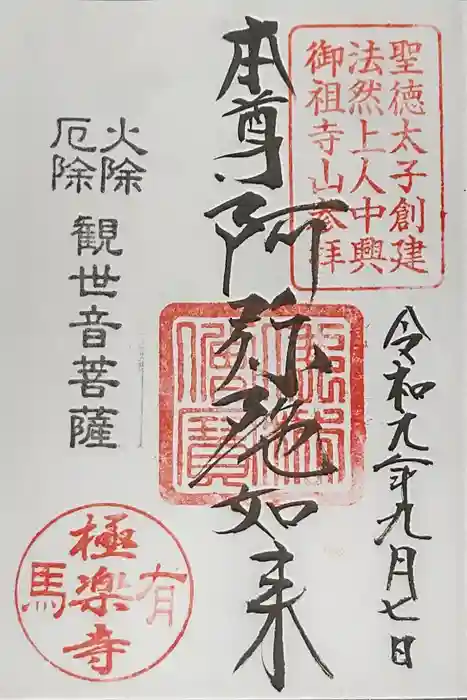 聖徳太子創建
法然上人中興
御祖寺山参拝
令和元年九月七日
本尊阿弥陀如来
佛法僧寶
火除
厄除
観世音菩薩
有馬
極楽寺